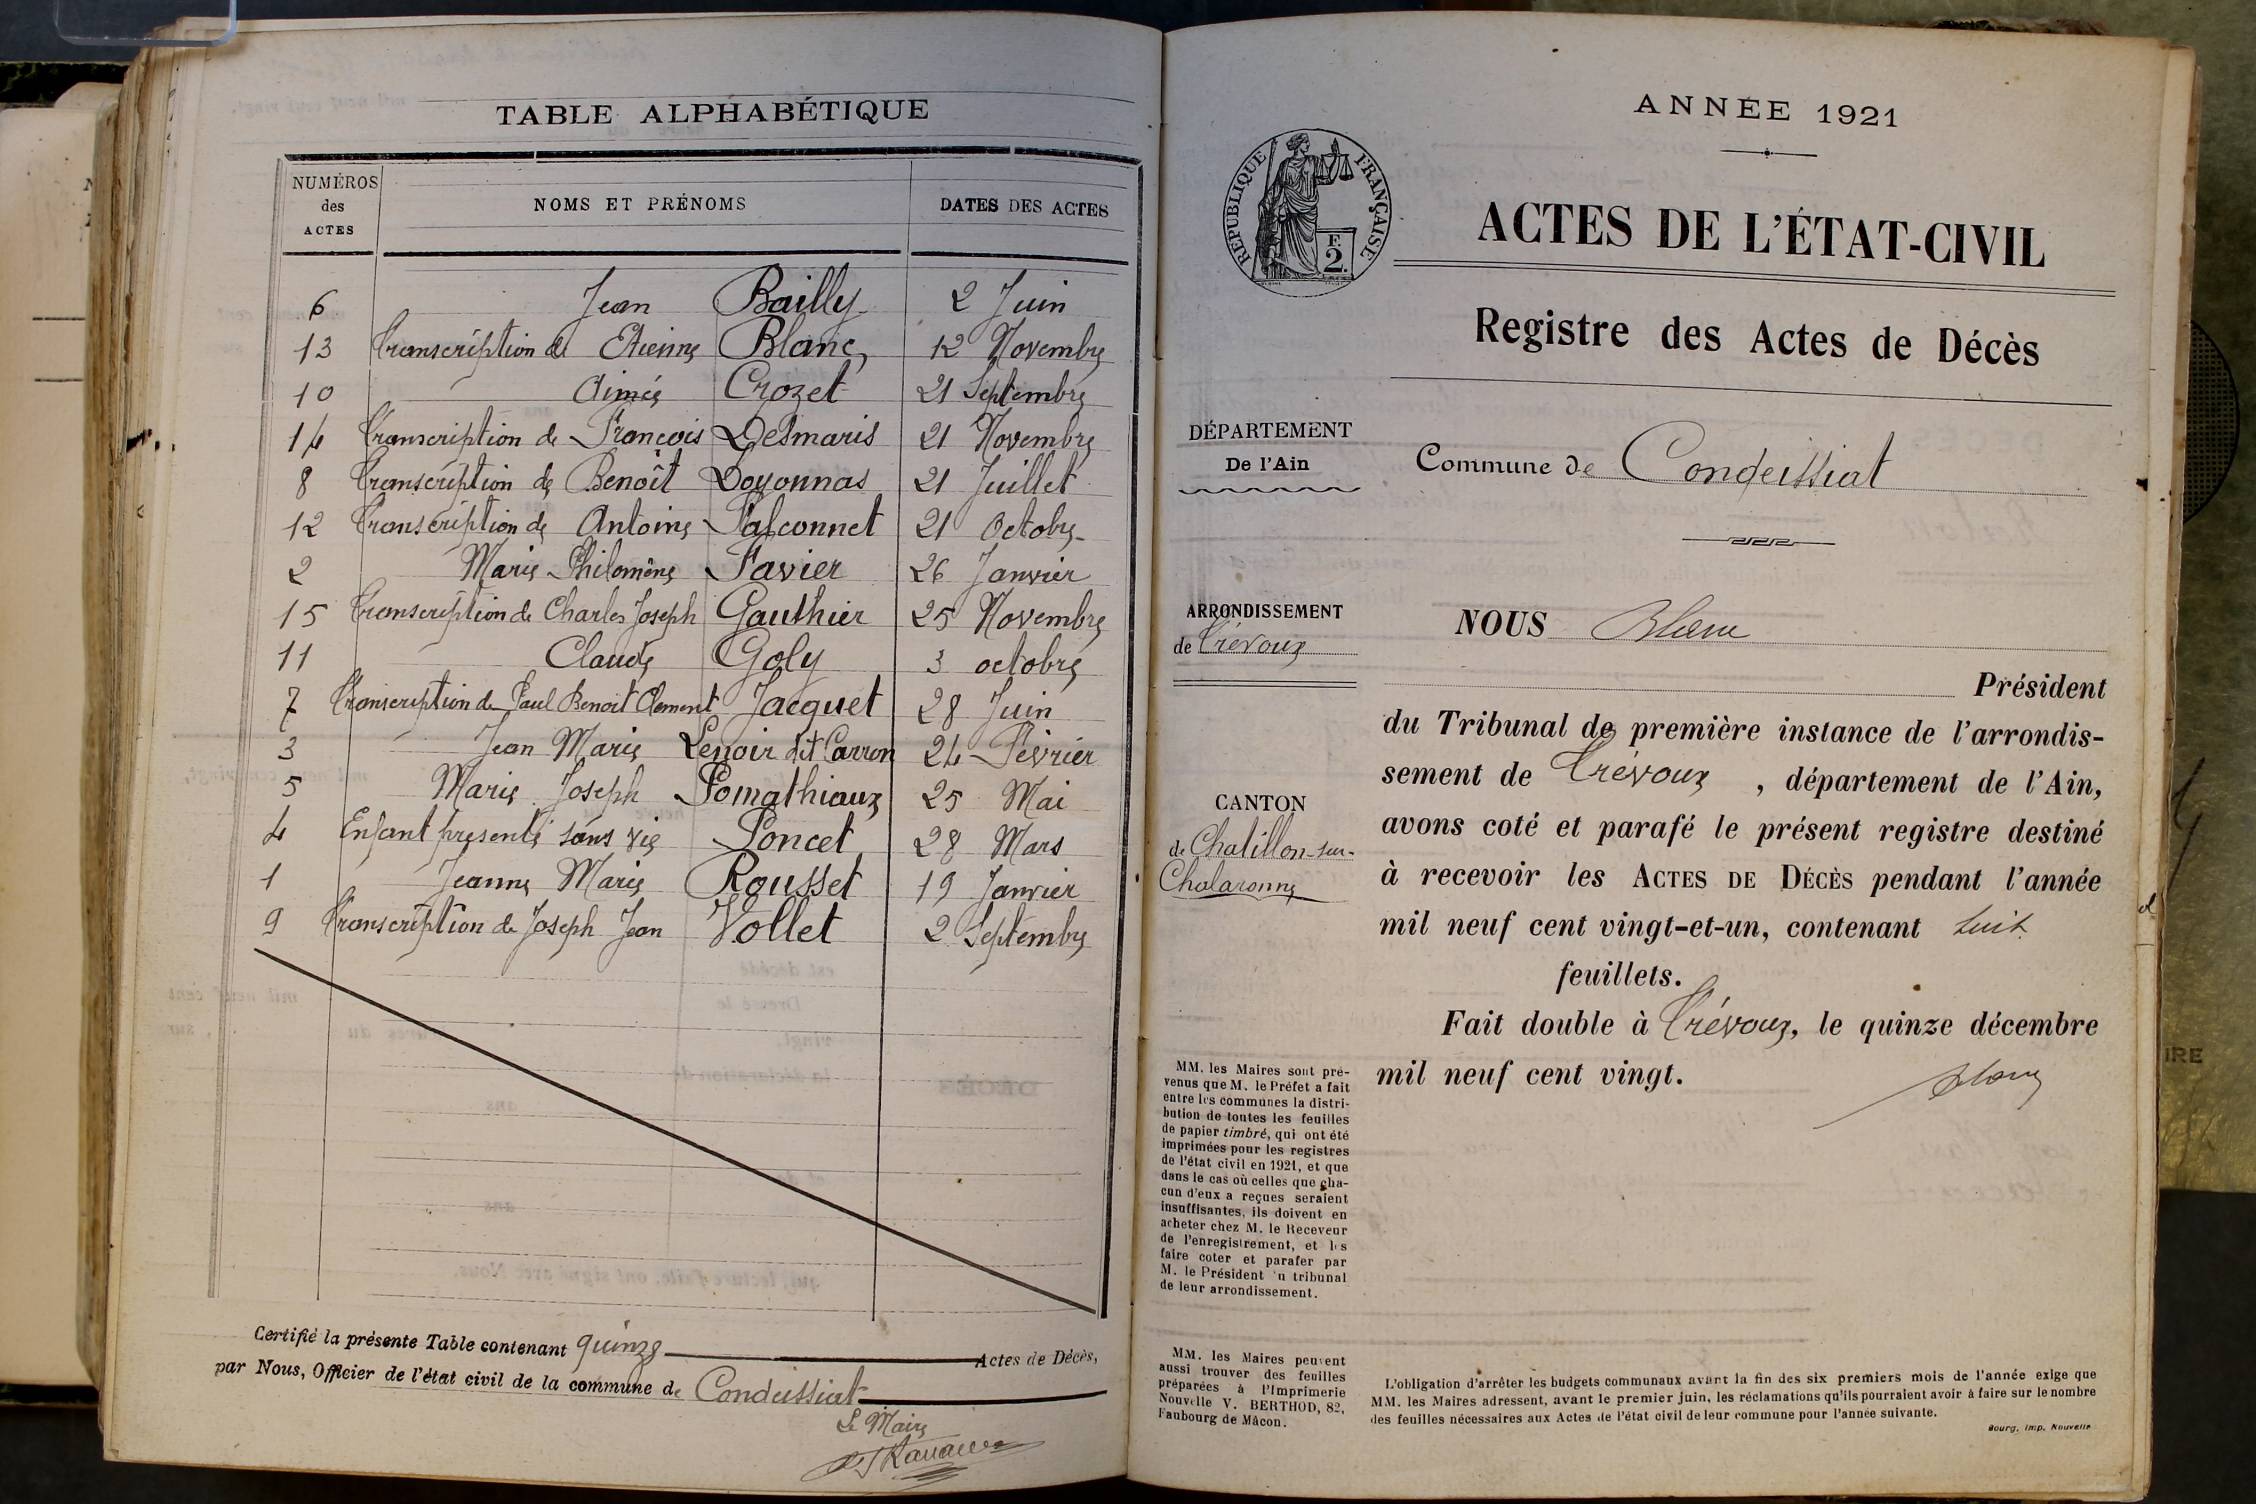 TABLE ALPHABÉTIQUE
NUMÉROS des ACTES NOMS ET PRÉNOMS DATES DES ACTES
6 Jean Bailly 2 Juin
13 Transcription de Etienne Blanc 12 Novembre
10 Aimée Crozet 21 Septembre
14 Transcription de François Desmaris 21 Novembre
8 Transcription de Benoît Doyonnas 21 Juillet
12 Transcription de Antoine Falconnet 21 Octobre
2 Marie Philomène Favier 26 Janvier
15 Transcription de Charles Joseph Gauthier 25 Novembre
11 Claude Goly 3 octobre
7 Transcription de Paul Benoit Clement Jacquet 28 Juin
3 Jean Marie Lenoir dit Carron 24 Février
5 Marie Joseph Pomathiaux 25 Mai
4 Enfant presenté sans vie Poncet 28 Mars
1 Jeanne Marie Rousset 19 Janvier
9 Transcription de Joseph Jean Vollet 2 Septembre
Certifié la présente Table contenant quinze Actes de Décès,
par Nous, Officier de l'état civil de la commune de Condeissiat
Le Maire
ANNÉE 1921
RÉPUBLIQUE FRANÇAISE
F.
2.
ACTES DE L'ÉTAT-CIVIL
Registre des Actes de Décès
DÉPARTEMENT
De l'Ain
Commune de Condeissiat
ARRONDISSEMENT
de Trévoux
CANTON
de Chatillon-sur-
Chalaronne
NOUS Blanc
Président
du Tribunal de première instance de l'arrondis-
sement de Trévoux, département de l'Ain,
avons coté et parafé le présent registre destiné
à recevoir les ACTES DE DÉCÈS pendant l'année
mil neuf cent vingt-et-un, contenant huit
feuillets.
Fait double à Trévoux, le quinze décembre
mil neuf cent vingt.
Blanc
MM. les Maires sont pré-
venus que M. le Préfet a fait
entre les communes la distri-
bution de toutes les feuilles
de papier timbré, qui ont été
imprimées pour les registres
de l'état civil en 1921, et que
dans le cas où celles que cha-
cun d'eux a reçues seraient
insuffisantes, ils doivent en
acheter chez M. le Receveur
de l'enregistrement, et les
faire coter et parafer par
M. le Président du tribunal
de leur arrondissement.
MM. les Maires peuvent
aussi trouver des feuilles
préparées à l'Imprimerie
Nouvelle V. BERTHOD, 82,
Faubourg de Mâcon.
L'obligation d'arrêter les budgets communaux avant la fin des six premiers mois de l'année exige que
MM. les Maires adressent, avant le premier juin, les réclamations qu'ils pourraient avoir à faire sur le nombre
des feuilles nécessaires aux Actes de l'état civil de leur commune pour l'année suivante.
Bourg, Imp. Nouvelle